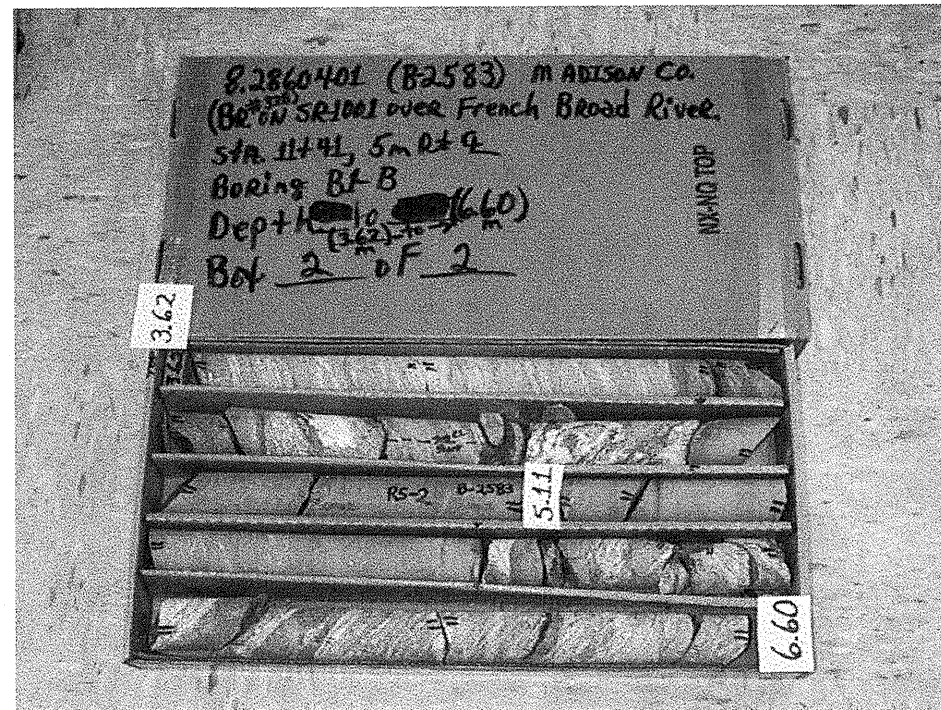 8.2860401 (B-2583) MADISON CO.
(BR ON SR1001 over French Broad River.
Sta. 11+41, 5m Rt
Boring B1-B
Depth to (6.60)
(3.62) to m
m
Box 2 of 2
NX-NO TOP
3.62
3.62
RS-2 B-2583
5.11
6.60